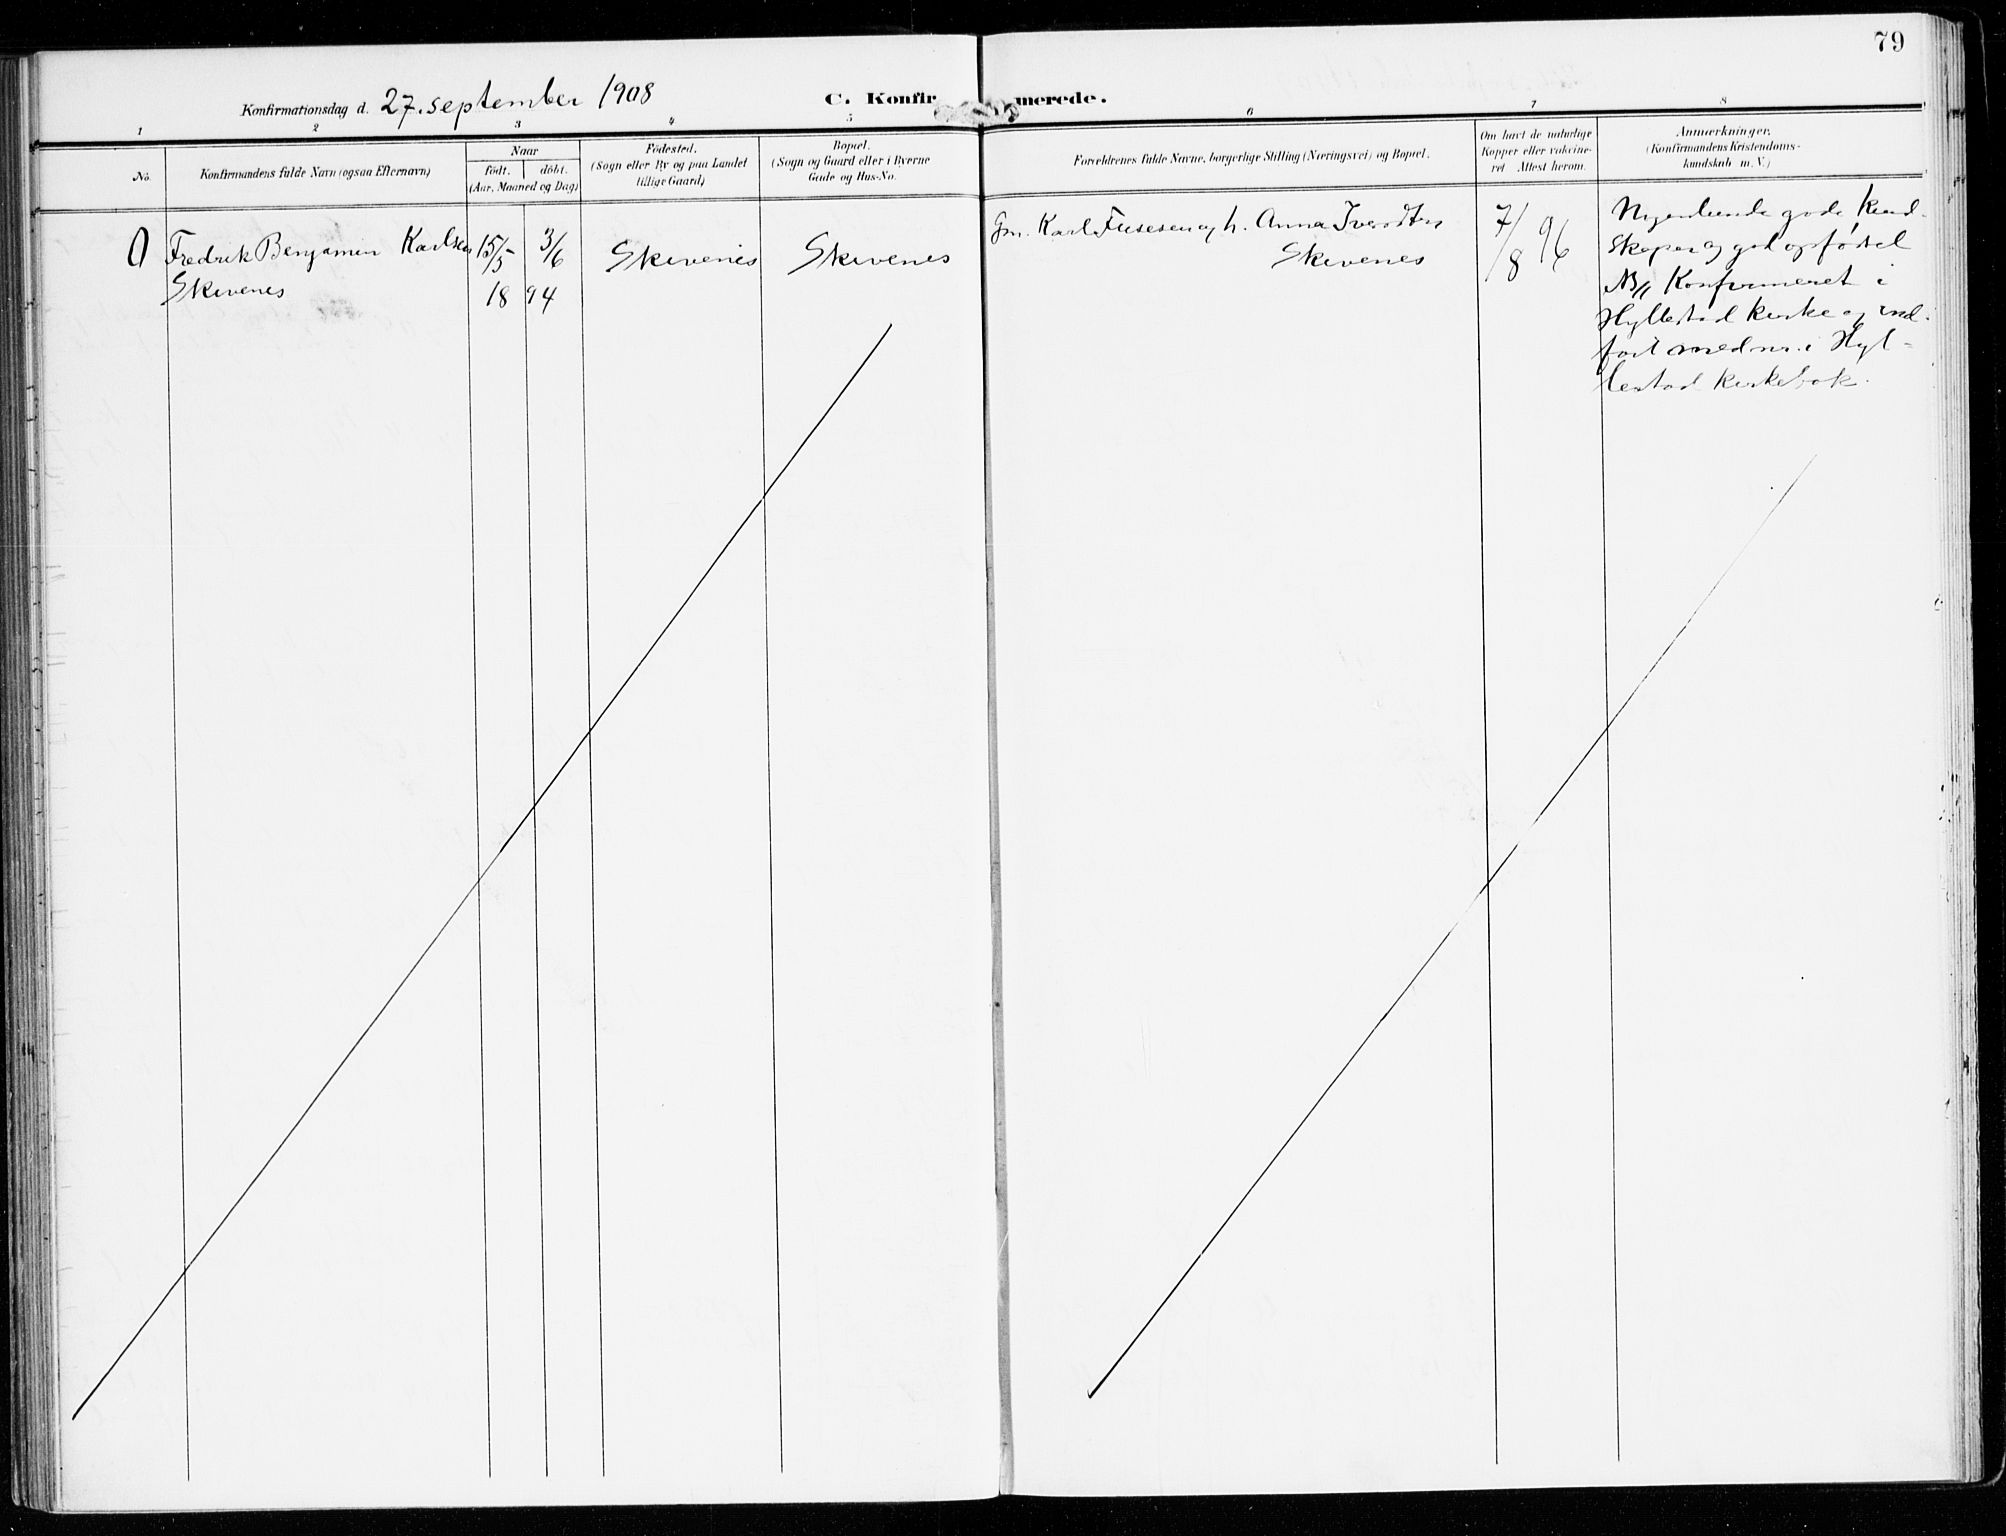 79
Konfirmationsdag d. 27. september 1908
C. Konfirmerede.
1 2 3 4 5 6 7 8
No.
Konfirmandens fulde Navn (ogsaa Efternavn)
Naar
født. døbt.
(Aar, Maaned og Dag)
Fødested.
(Sogn eller By og paa Landet
tillige Gaard)
Bopæl.
(Sogn og Gaard eller i Byerne
Gade og Hus-No.
Forældrenes fulde Navne, borgerlige Stilling (Næringsvei) og Bopæl.
Om havt de naturlige
Kopper eller vakcine-
ret Attest herom.
Anmærkninger.
(Konfirmandens Kristendoms-
kundskab m. V.)
0 Fredrik Benjamin Karlsen
Skivenes
15/5 3/6
18 94
Skivenes
Skivenes
Gm. Karl og h. Anna
Skivenes
7/8 96
gode kund-
skaper og god opførsel
NB// Konfirmeret i
Hyllestad kirke og ind-
ført med nr. i Hyl-
lestad kirkebok.